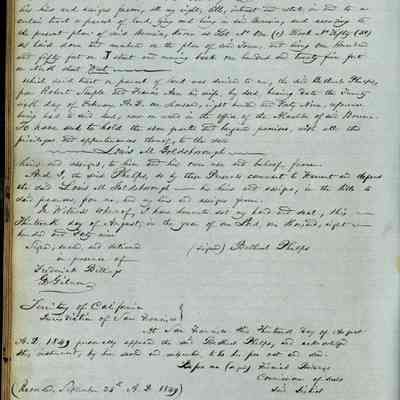 his heirs and assigns forever, all my right, title, interest and estate, in and to a
certain tract or parcel of land, lying and being in San Francisco, and according to
the present plan of said Francisco, known as Lot No One (1) Block No Fifty
as laid down and marked on the plan of said Town, and being One Hundred
and fifty feet on J Street and running back one hundred and twenty five feet
with said
which said tract or parcel of land was deeded to me, the said Bethuel Phelps,
by Robert Semple and Frances Ann his wife, by deed, bearing date the Twenty
sixth day of February A.D. one thousand, eight hundred and Forty Nine, reference
being had to said deed, now on record in the office of the Alcalde of said
To have and to hold the above granted and bargained premises, with all the
privileges and appurtenances thereof, to the said
Louis M. Goldsborough
heirs and assigns, to him and his own use and behoof, forever.
And I, the said Phelps, do by these Presents covenant to Warrant and defend
the said Louis M. Goldsborough his heirs and assigns, in the title to
said premises, for me, and my heirs and assigns forever.
In Witness whereof, I have hereunto set my hand and seal, this
Thirteenth day of August, in the year of our Lord, one thousand, eight
hundred and Forty nine
Signed, sealed, and delivered (signed) Bethuel Phelps
in presence of
Frederick Billings
Territory of California
Jurisdiction of San Francisco
At San Francisco this Thirteenth day of August
A.D. 1849 personally appeared the said Bethuel Phelps, and acknowledged
this instrument, by him sealed and subscribed, to be his free act and deed.
Before me (signed) Frederick Billings
Commissioner of deeds
(Recorded, September 25th A.D. 1849)